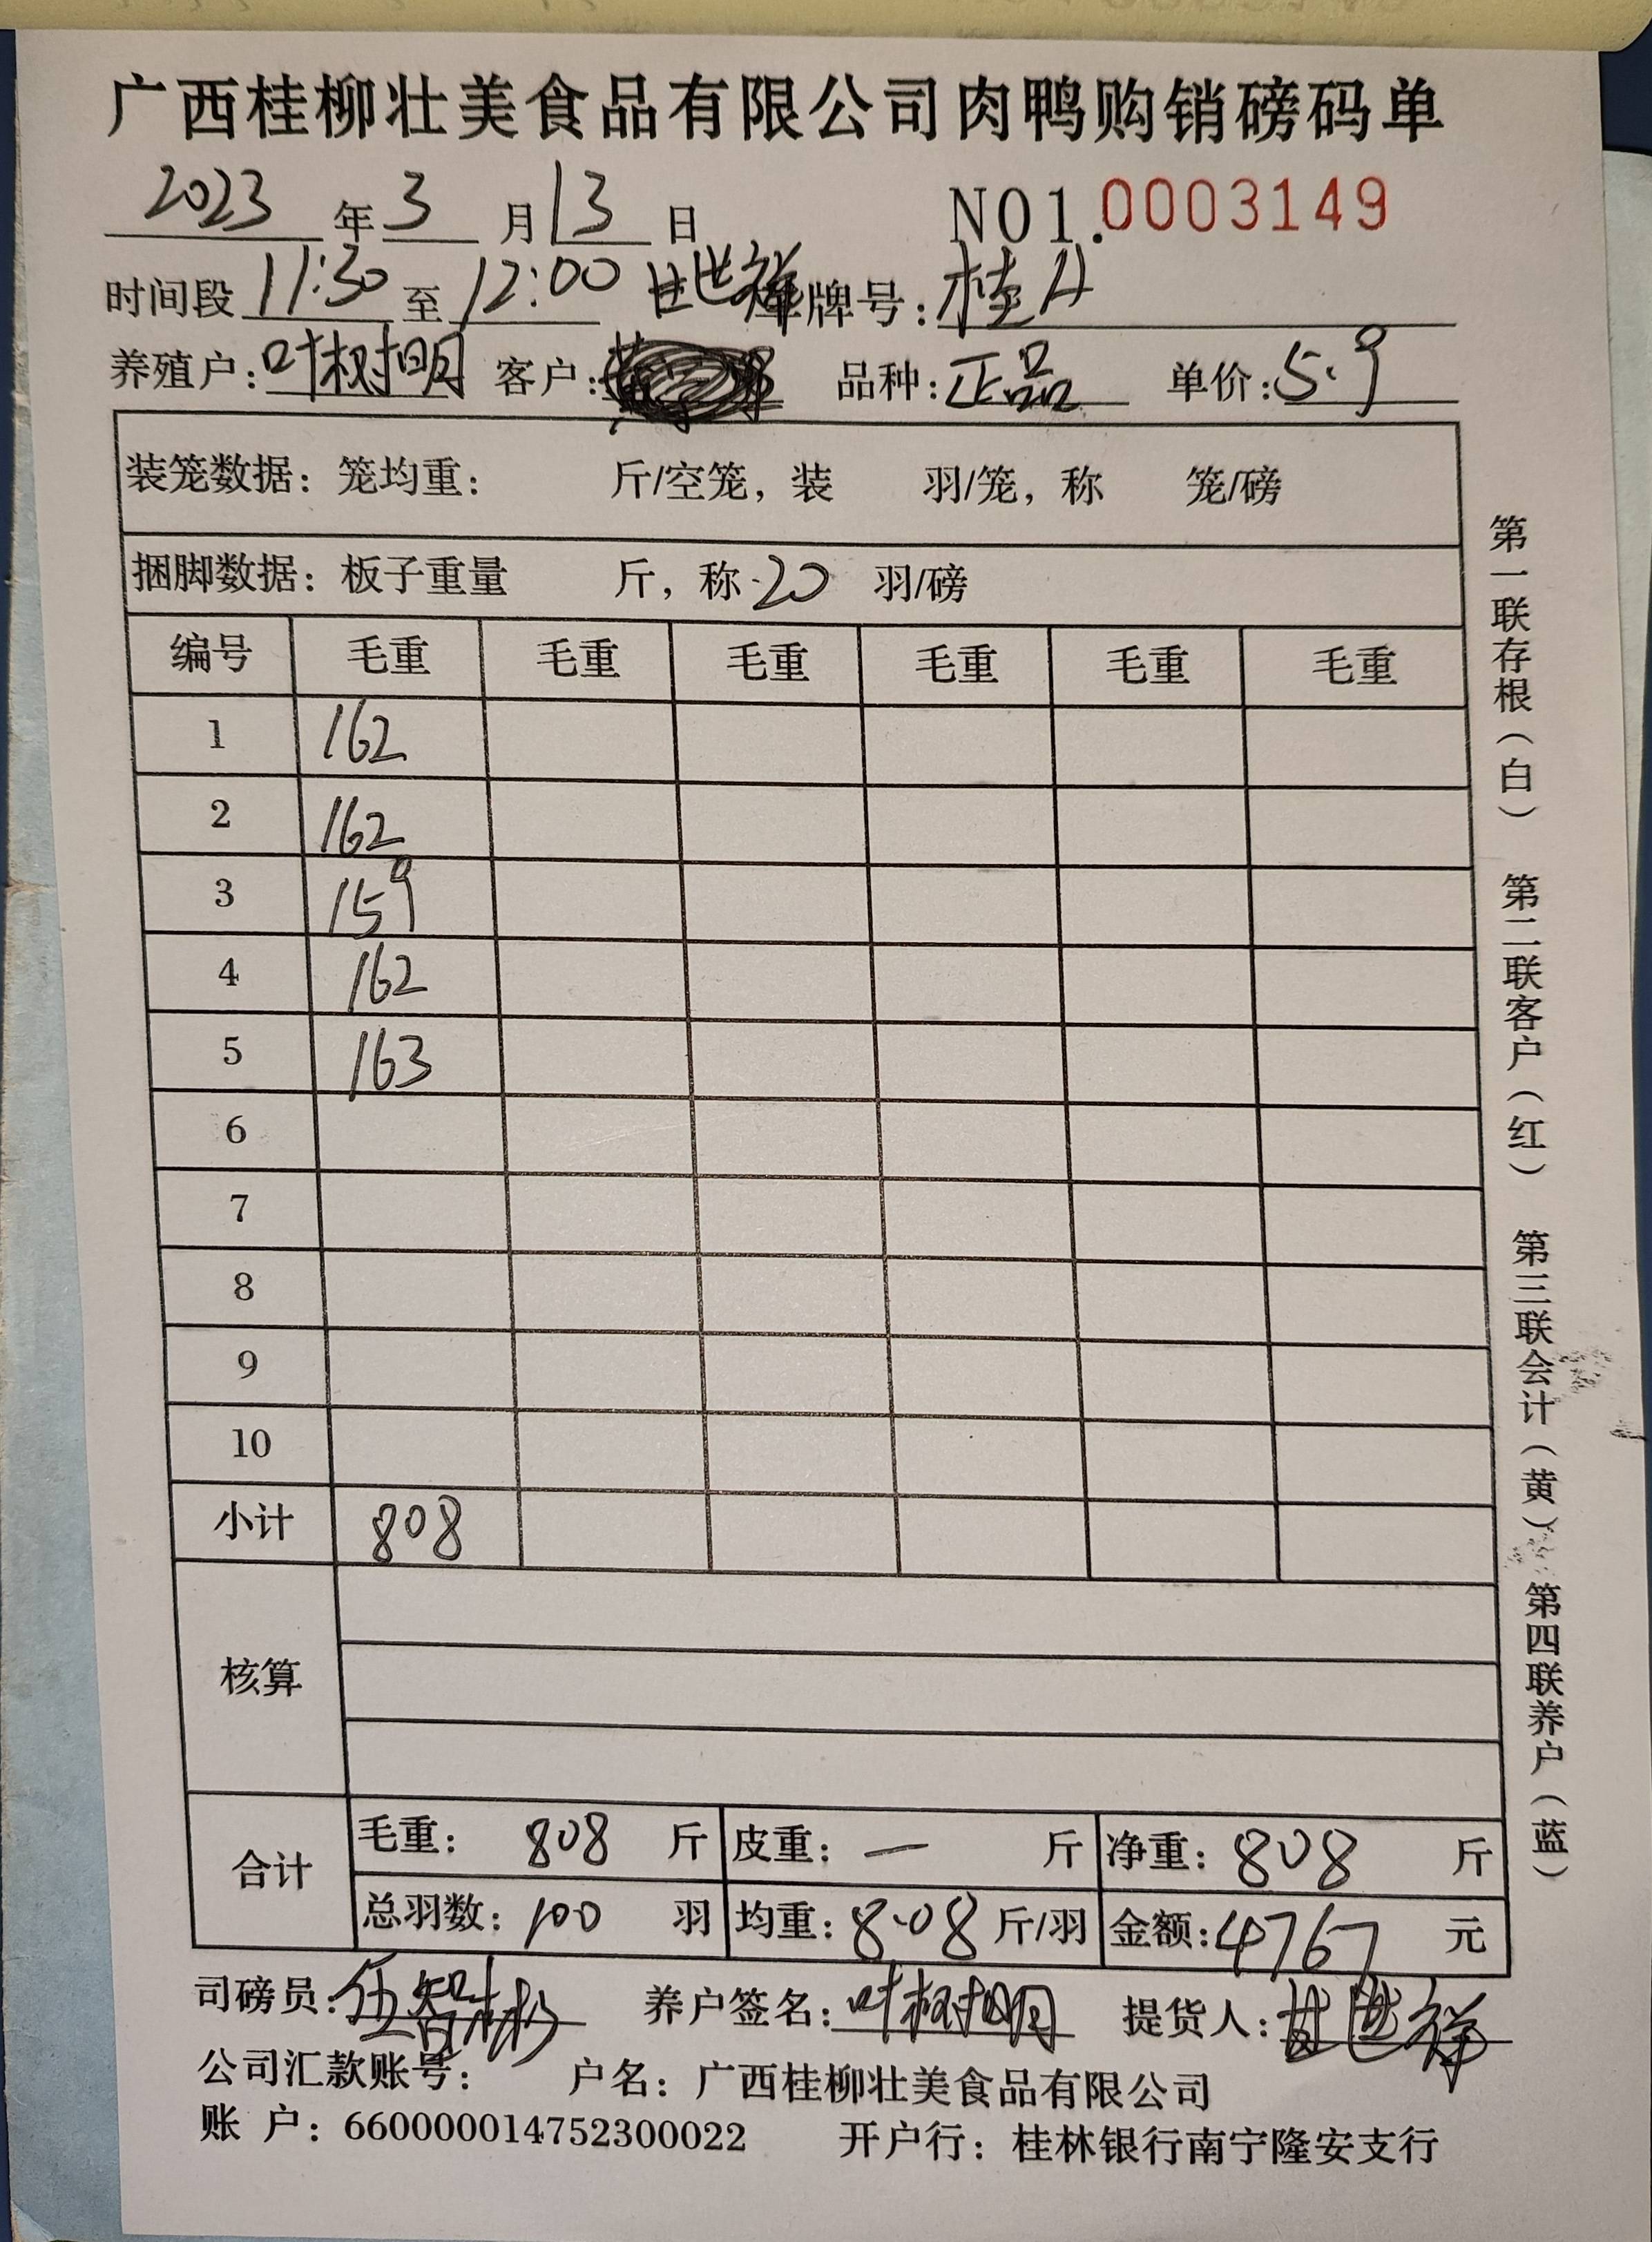 广西桂柳壮美食品有限公司肉鸭购销磅码单
2023年3月13日 NO1.0003149
时间段11:30至12:00 甘世祥 车牌号:桂A
养殖户:叶树明 客户: 品种:正品 单价:5.9
装笼数据:笼均重: 斤/空笼,装 羽/笼,称 笼/磅
捆脚数据:板子重量 斤,称20羽/磅
编号 毛重 毛重 毛重 毛重 毛重 毛重
1 162
2 162
3 159
4 162
5 163
6
7
8
9
10
小计 808
核算
合计 毛重:808斤 皮重:—斤 净重:808斤
总羽数:100羽 均重:8.08斤/羽 金额:4767元
司磅员:伍智彬 养户签名:叶树明 提货人:甘世祥
公司汇款账号: 户名:广西桂柳壮美食品有限公司
账 户:660000014752300022 开户行:桂林银行南宁隆安支行
第一联存根(白) 第二联客户(红) 第三联会计(黄) 第四联养户(蓝)